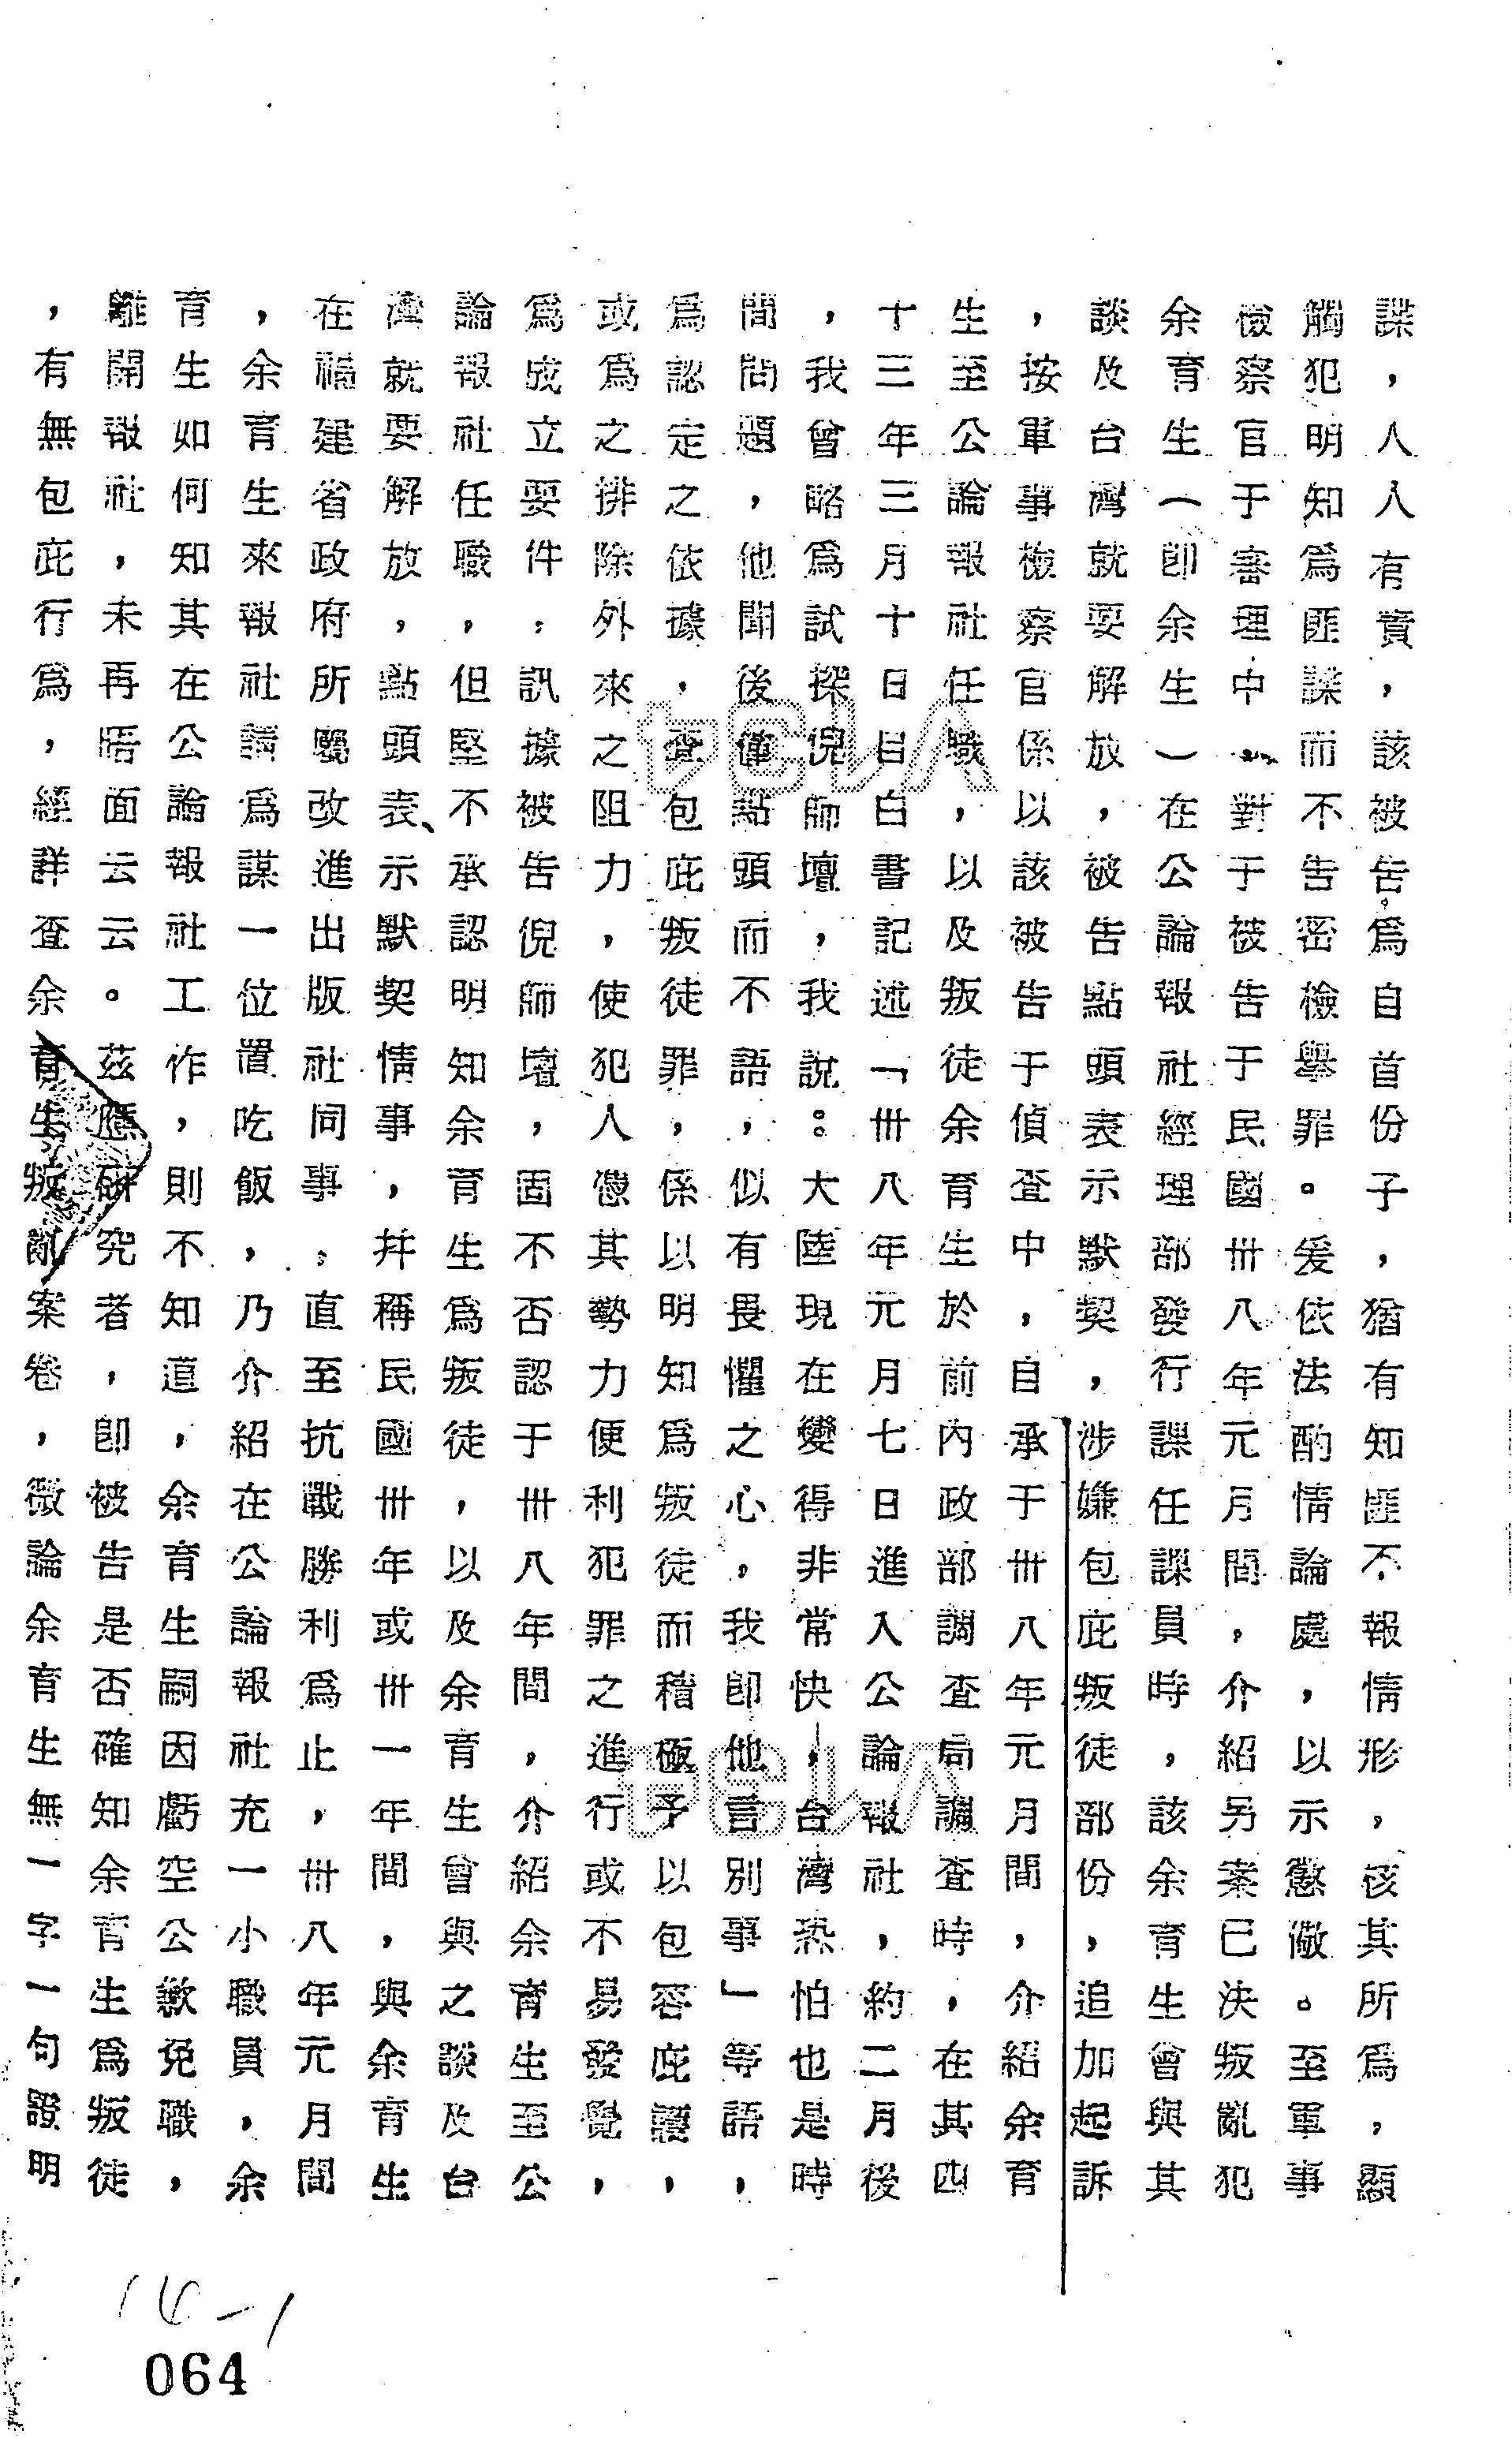 諜，人人有責，該被告爲自首份子，猶有知匪不報情形，核其所爲，顯
觸犯明知爲匪諜而不告密檢舉罪。爰依法酌情論處，以示懲儆。至軍事
檢察官于審理中，對于被告于民國卅八年元月間，介紹另案已決叛亂犯
余育生（卽余生）在公論報社經理部發行課任課員時，該余育生曾與其
談及台灣就要解放，被告點頭表示默契，涉嫌包庇叛徒部份，追加起訴
，按軍事檢察官係以該被告于偵查中，自承于卅八年元月間，介紹余育
生至公論報社任職，以及叛徒余育生於前內政部調查局調查時，在其四
十三年三月十日自白書記述「卅八年元月七日進入公論報社，約二月後
，我曾略爲試探倪師壇，我說：大陸現在變得非常快，台灣恐怕也是時
間問題，他聞後僅點頭而不語，似有畏懼之心，我卽他言別事」等語，
爲認定之依據，查包庇叛徒罪，係以明知爲叛徒，而積極予以包容庇護，
或爲之排除外來之阻力，使犯人憑其勢力便利犯罪之進行或不易發覺，
爲成立要件，訊據被告倪師壇，固不否認于卅八年間，介紹余育生至公
論報社任職，但堅不承認明知余育生爲叛徒，以及余育生曾與之談及台
灣就要解放，點頭表示默契情事，幷稱民國卅年或卅一年間，與余育生
在福建省政府所屬改進出版社同事，直至抗戰勝利爲止，卅八年元月間
，余育生來報社請爲謀一位置吃飯，乃介紹在公論報社充一小職員，余
育生如何知其在公論報社工作，則不知道，余育生嗣因虧空公款免職，
離開報社，未再晤面云云。茲應研究者，卽被告是否確知余育生爲叛徒
，有無包庇行爲，經詳查余育生叛亂案卷，微論余育生無一字一句證明
14-1
064